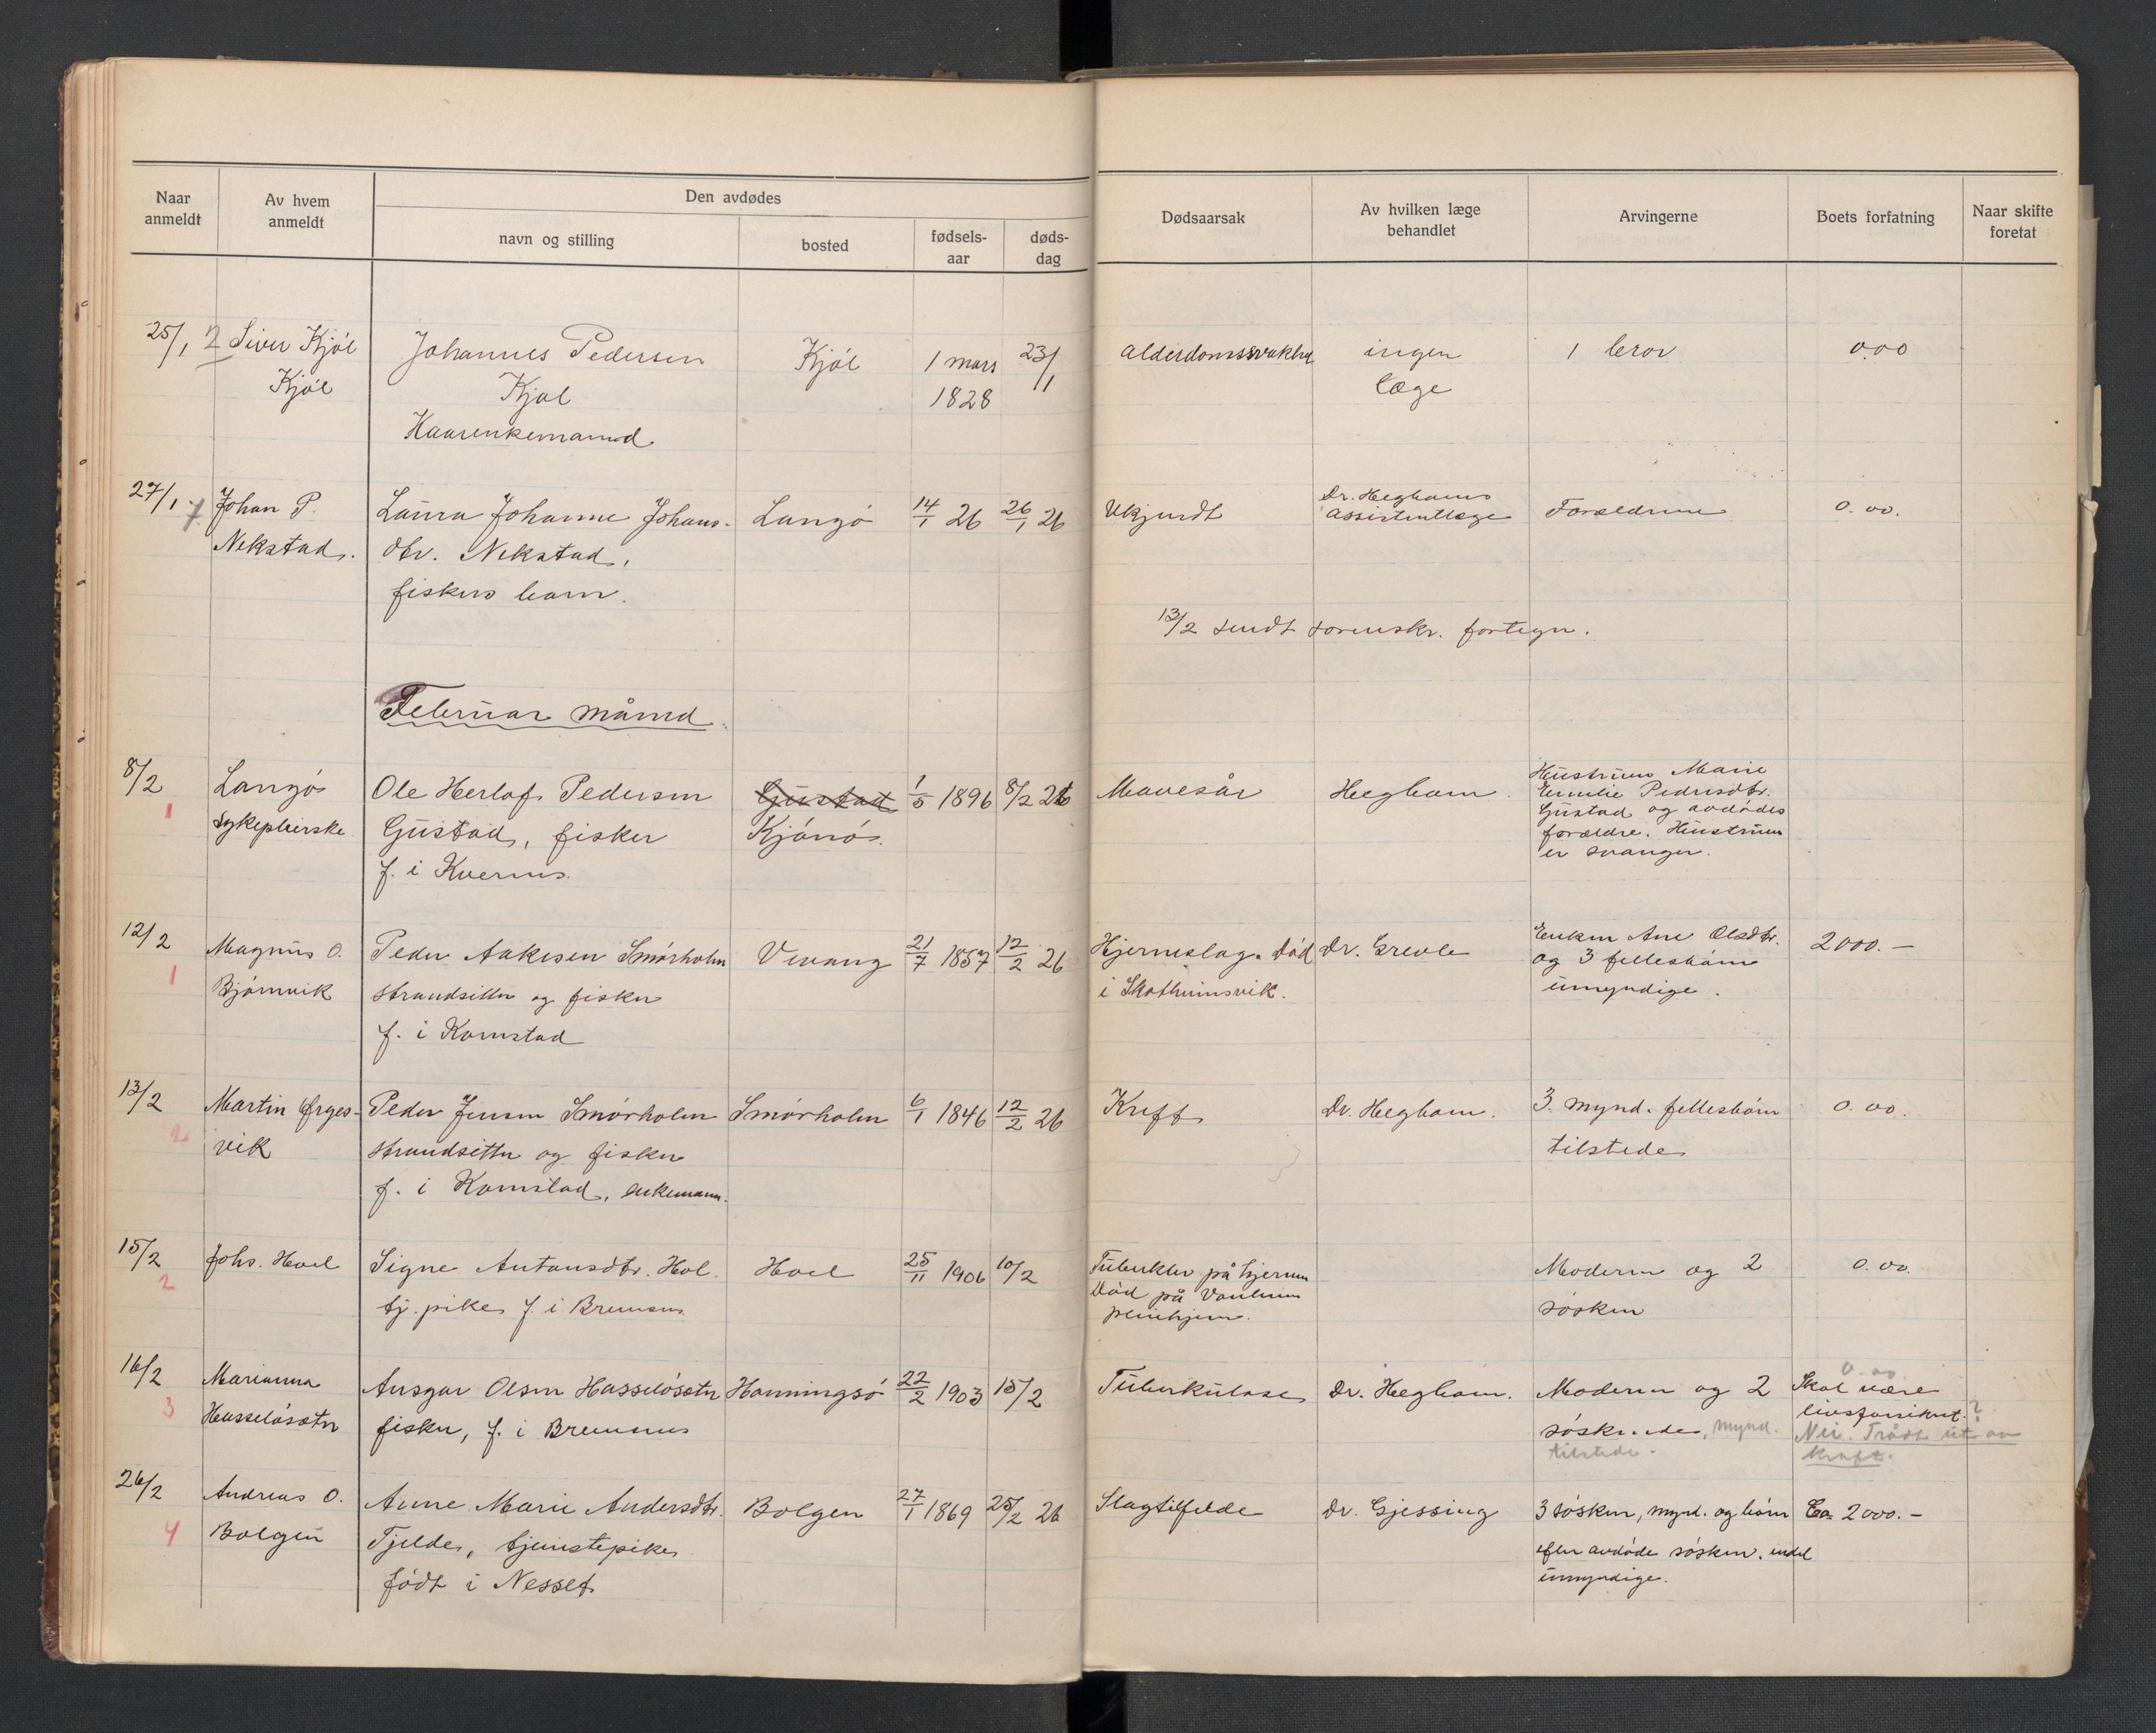 Naar anmeldt
Av hvem anmeldt
Den avdødes
navn og stilling
bosted
fødsels-aar
døds-dag
Dødsaarsak
Av hvilken læge behandlet
Arvingerne
Boets forfatning
Naar skifte foretat
25/1 Siver Kjöl Johannes Pedersen Kjöl 1 mars 23/1 Alderdomssvakhed ingen 1 bror 0.00
Kjöl Kjøl 1828 læge
27/1 Johan P. Laura Johanne Johans- Langö 14/1 26 26/1 26 Ukjendt Dr. Heghams assistentlæge Forældrene 0.00.
Nekstad. dtr. Nekstad,
fiskers barn.
13/2 sendt sorenskr. fortegn.
Februar måned.
8/2 Langös Ole Herlof Pedersen Gustad 1/5 1896 8/2 26 Mavesår Hegham. Hustruen Marie
1 sykepleierske Gustad, fisker Kjönös. Emilie Pedersdtr.
f. i Kvernes. Gustad og avdödes
forældre. Hustruen
er svanger.
12/2 Magnus O. Peder Aakesen Smörholm Vevang 21/7 1857 12/2 26 Hjerneslag. Död Dr. Grevle Enken Ane Olsdtr. 2000.-
1 Bjørnvik strandsitter og fisker i og 3 fellesbörn
f. i Kornstad umyndige.
13/2 Martin Ørges- Peder Jensen Smörholm Smörholm 6/1 1846 12/2 26 Kreft Dr. Hegham. 3 mynd. fellesbörn 0.00.
2 vik strandsitter og fisker tilstede
f. i Kornstad, enkemann.
15/2 Johs. Hoel Signe Antonsdtr. Hol. Hoel 25/11 1906 10/2 Tuberkler på hjernen Moderen og 2 0.00.
2 tj.pike f. i Bremsnes. Död på sösken
pleiehjem.
16/2 Marianna Ansgar Olsen Hasselösætr Honningsö 22/2 1903 15/2 Tuberkulose Dr. Hegham. Moderen og 2 0.00 Skal være
3 Hasselösætr fisker, f. i Bremsnes söskende, mynd. livsforsikret.?
tilstede. Nei. Trådt ut av
kraft.
26/2 Andreas O. Anne Marie Andersdtr. Bolgen 27/1 1869 25/2 26 Slagtilfelde Dr. Gjessing 3 sösken, mynd. og börn Ca. 2000.-
4 Bolgen Tjelde, tjenestepike efter avdöde sösken. endel
födt i Nesset umyndige.